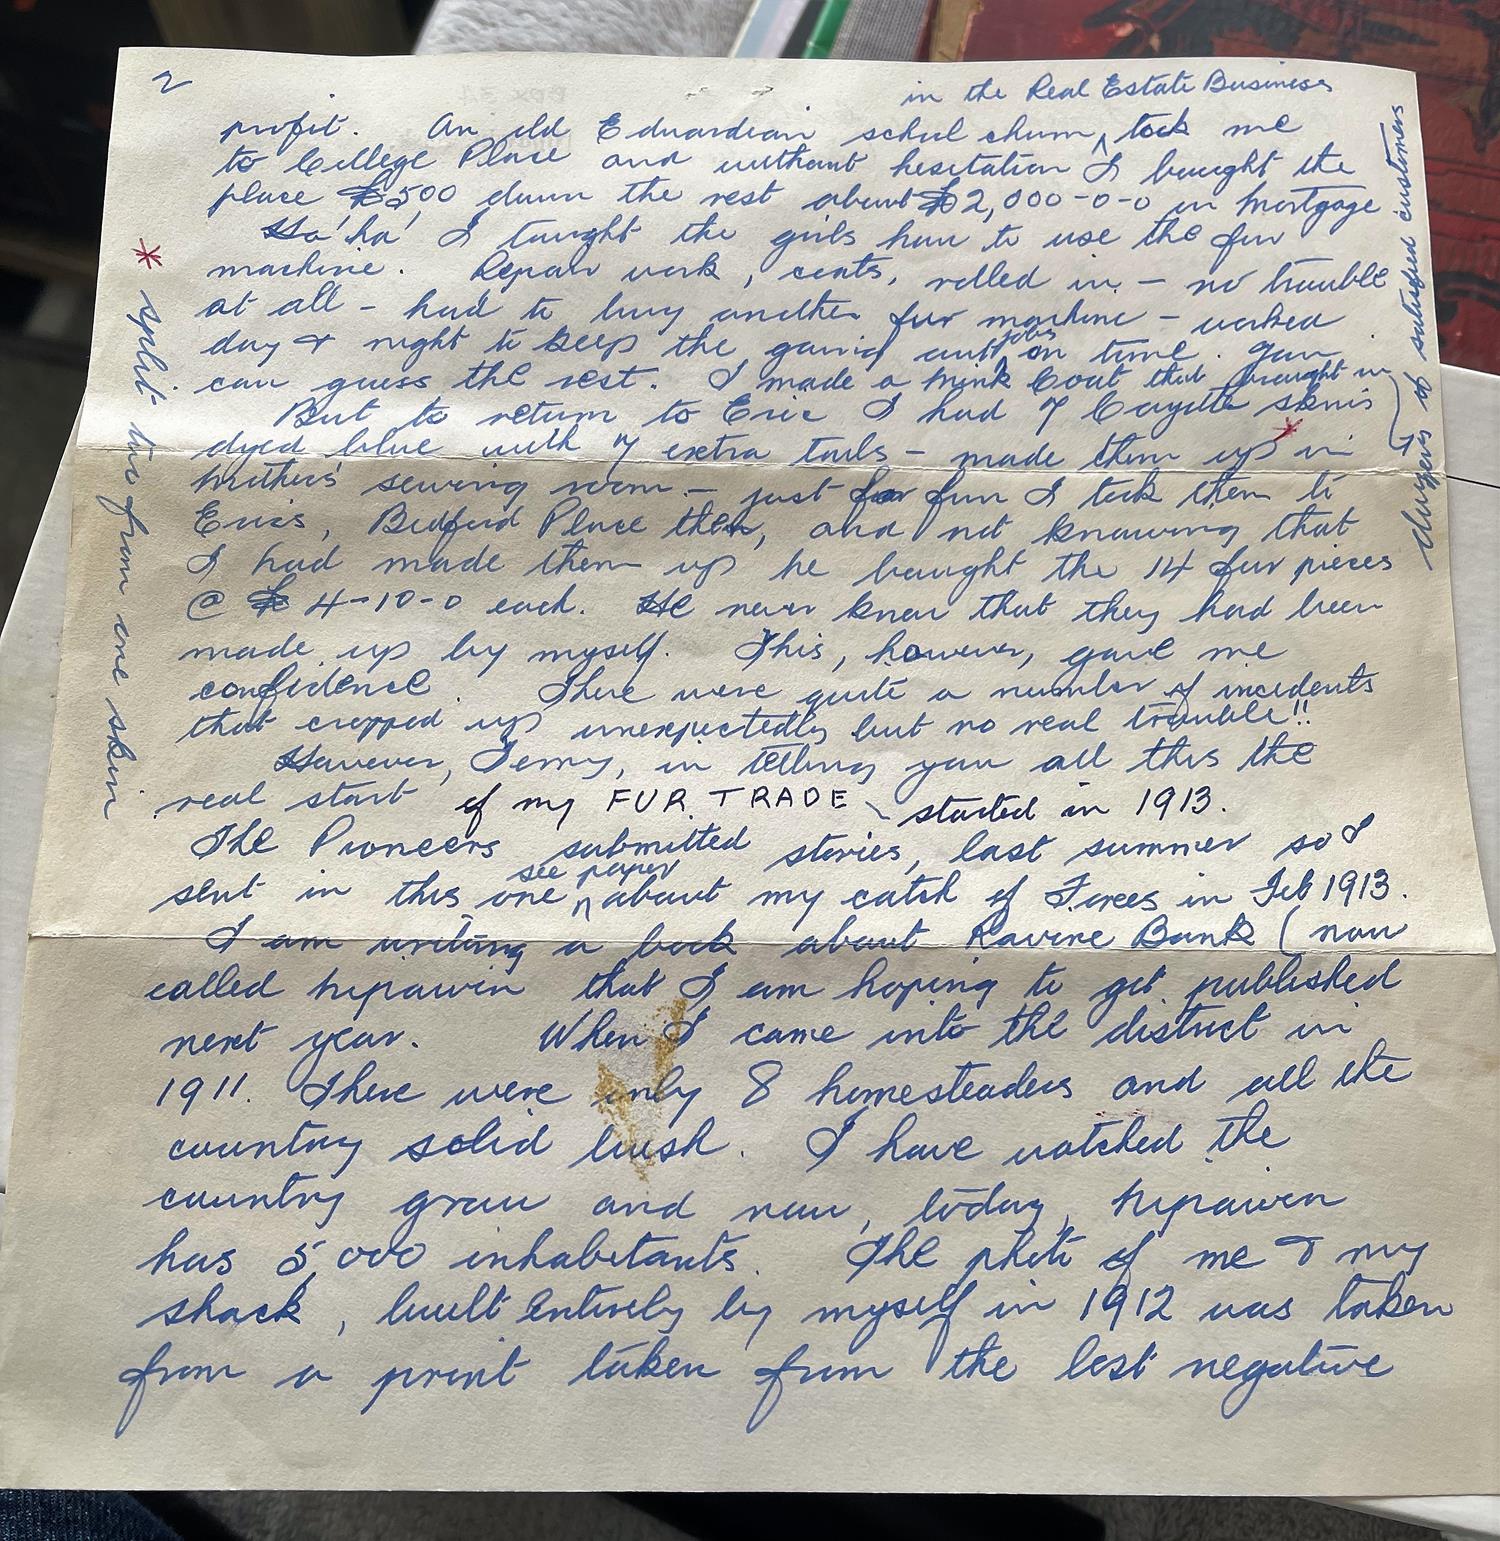 2
in the Real Estate Business
profit. An old Edwardian school chum ^ took me
to College Place and without hesitation I bought the
place £500 down the rest about £2,000-0-0 in mortgage
Ha' ha' I taught the girls how to use the fur
machine. Repair work, coats, rolled in - no trouble
at all - had to buy another fur machine - worked
day & night to keep the out on time. You
jobs
can guess the rest. I made a Mink Coat that brought in
dozens of satisfied customers
But to return to Eric I had 7 Coyotte skins
dyed blue with 7 extra tails - made them up in *
mother's sewing room - just for fun I took them to
Eric's, Bedford Place then, and not knowing that
I had made them up he bought the 14 fur pieces
@ £ 4-10-0 each. He never knew that they had been
made up by myself. This, however, gave me
confidence. There were quite a number of incidents
that cropped up unexpectedly but no real trouble!!
However, Terry, in telling you all this the
real start of my FUR TRADE started in 1913.
The Pioneers submitted stories, last summer so I
see paper
sent in this one ^ about my catch of in Feb 1913.
I am writing a book about Ravine Bank (now
called Nipawin that I am hoping to get published
next year. When I came into the district in
1911. There were only 8 homesteaders and all the
country solid bush. I have watched the
country grow and now, today, Nipawin
has 5,000 inhabitants. The photo of me & my
shack, built entirely by myself in 1912 was taken
from a print taken from the lost negative
* split two from one skin